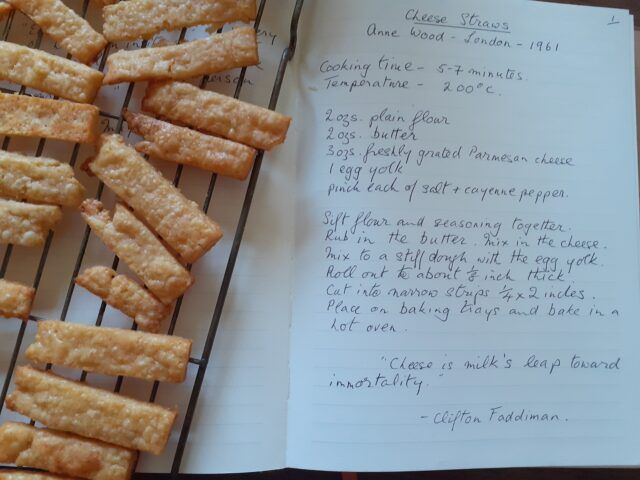 1
Cheese Straws
Anne Wood - London - 1961
Cooking time - 5-7 minutes.
Temperature - 200°C.
2ozs. plain flour
2ozs. butter
3ozs. freshly grated Parmesan cheese
1 egg yolk
pinch each of salt + cayenne pepper.
Sift flour and seasoning together.
Rub in the butter. Mix in the cheese.
Mix to a stiff dough with the egg yolk.
Roll out to about ⅛ inch thick.
Cut into narrow strips ¼ x 2 inches.
Place on baking trays and bake in a
hot oven.
"Cheese is milk's leap toward
immortality."
- Clifton Faddiman.